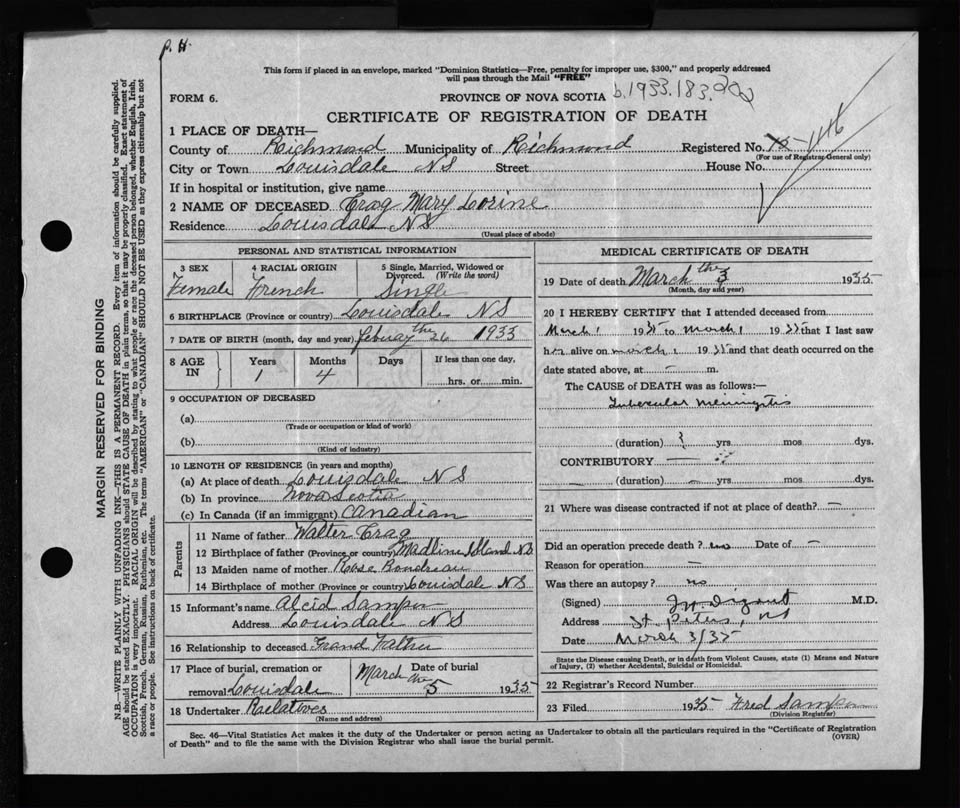 P. H.
This form if placed in an envelope, marked "Dominion Statistics—Free, penalty for improper use, $300," and properly addressed
will pass through the Mail "FREE"
FORM 6. PROVINCE OF NOVA SCOTIA b.1933.183.202
CERTIFICATE OF REGISTRATION OF DEATH
1 PLACE OF DEATH—
County of Richmond Municipality of Richmond Registered No.
(For use of Registrar General only)
City or Town Louisdale NS Street House No.
If in hospital or institution, give name
2 NAME OF DECEASED Crag Mary Lorine
Residence Louisdale NS
(Usual place of abode)
PERSONAL AND STATISTICAL INFORMATION
3 SEX 4 RACIAL ORIGIN 5 Single, Married, Widowed or
Divorced. (Write the word)
Female French Single
6 BIRTHPLACE (Province or country) Louisdale NS
7 DATE OF BIRTH (month, day and year) Febuary 26 th 1933
8 AGE IN Years Months Days If less than one day,
1 4 hrs. or min.
9 OCCUPATION OF DECEASED
(a)
(Trade or occupation or kind of work)
(b)
(Kind of industry)
10 LENGTH OF RESIDENCE (in years and months)
(a) At place of death Louisdale NS
(b) In province Nova Scotia
(c) In Canada (if an immigrant) Canadian
Parents
11 Name of father Walter Crag
12 Birthplace of father (Province or country) Madline Island NS
13 Maiden name of mother Rose
14 Birthplace of mother (Province or country) Louisdale NS
15 Informant's name Alcid Sampson
Address Louisdale NS
16 Relationship to deceased Grand Father
17 Place of burial, cremation or Date of burial
removal Louisdale March the 5 1935
18 Undertaker Raelatives
(Name and address)
MEDICAL CERTIFICATE OF DEATH
19 Date of death March the 3 1935
(Month, day and year)
20 I HEREBY CERTIFY that I attended deceased from
March 1 1935 to March 1 1935 that I last saw
her alive on March 1 1935 and that death occurred on the
date stated above, at — m.
The CAUSE of DEATH was as follows:—
Tubercular Meningitis
(duration) yrs mos dys.
CONTRIBUTORY —
(duration) — yrs. mos. dys.
21 Where was disease contracted if not at place of death? —
Did an operation precede death? no Date of —
Reason for operation —
Was there an autopsy? no
(Signed) M.D.
Address St. Peters, NS
Date March 3/35
State the Disease causing Death, or in death from Violent Causes, state (1) Means and Nature
of Injury, (2) whether Accidental, Suicidal or Homicidal.
22 Registrar's Record Number
23 Filed 1935 Fred Sampson
(Division Registrar)
Sec. 46—Vital Statistics Act makes it the duty of the Undertaker or person acting as Undertaker to obtain all the particulars required in the "Certificate of Registration
of Death" and to file the same with the Division Registrar who shall issue the burial permit. (OVER)
MARGIN RESERVED FOR BINDING
N.B.—WRITE PLAINLY WITH UNFADING INK—THIS IS A PERMANENT RECORD. Every item of information should be carefully supplied.
AGE should be stated EXACTLY. PHYSICIANS should STATE CAUSE OF DEATH in plain terms, so that it may be properly classified. Exact statement of
OCCUPATION is very important. RACIAL ORIGIN will be described by stating to what people or race the deceased person belonged, whether English, Irish,
Scottish, French, German, Russian, Ruthenian, etc. The terms "AMERICAN" or "CANADIAN" SHOULD NOT BE USED as they express citizenship but not
a race or people. See instructions on back of certificate.